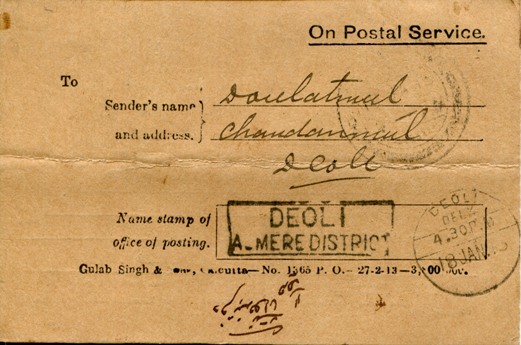 On Postal Service.
To
Sender's name
and address.
Doulatmul
Chandanmul
Deoli
Name stamp of
office of posting.
DEOLI
A MERE DISTRICT
DEOLI
DEL
4.30 P.M
18 JAN
Gulab Singh & Calcutta—No. 1365 P. O.—27-2-13—